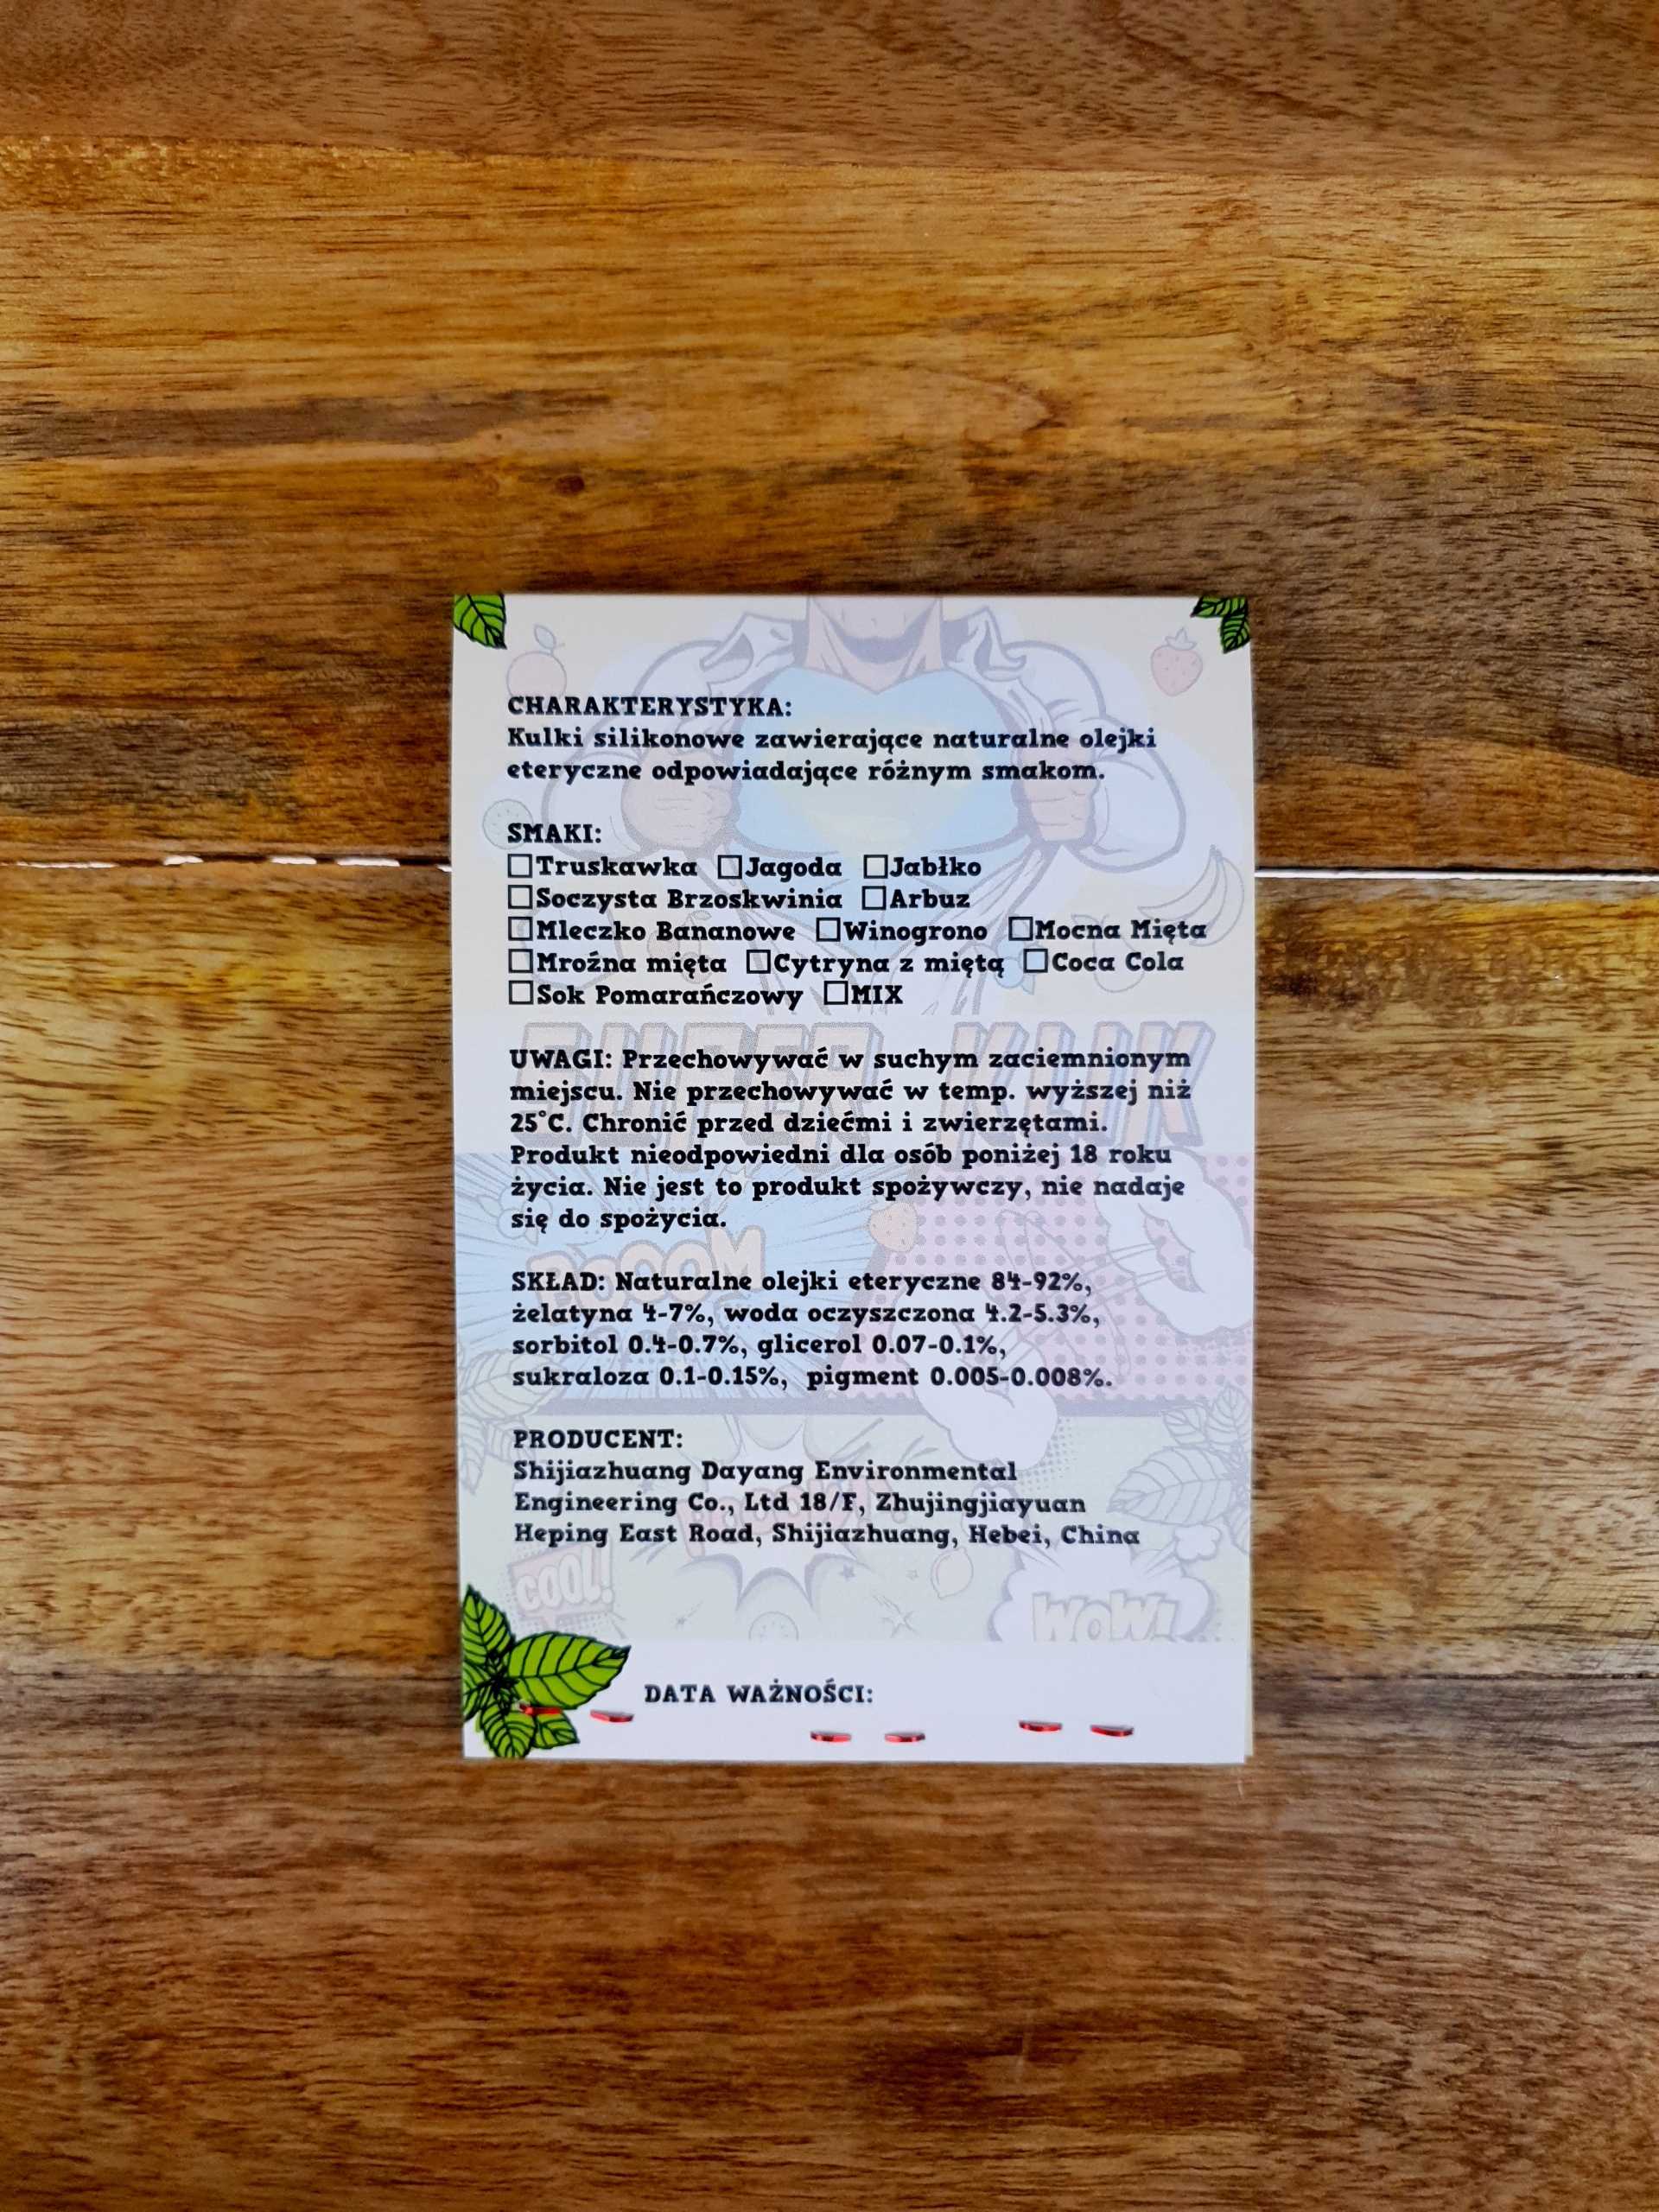 CHARAKTERYSTYKA:
Kulki silikonowe zawierające naturalne olejki
eteryczne odpowiadające różnym smakom.
SMAKI:
☐Truskawka ☐Jagoda ☐Jabłko
☐Soczysta Brzoskwinia ☐Arbuz
☐Mleczko Bananowe ☐Winogrono ☐Mocna Mięta
☐Mroźna mięta ☐Cytryna z miętą ☐Coca Cola
☐Sok Pomarańczowy ☐MIX
SUPER KLIK
UWAGI: Przechowywać w suchym zaciemnionym
miejscu. Nie przechowywać w temp. wyższej niż
25°C. Chronić przed dziećmi i zwierzętami.
Produkt nieodpowiedni dla osób poniżej 18 roku
życia. Nie jest to produkt spożywczy, nie nadaje
się do spożycia.
BOOOM
SKŁAD: Naturalne olejki eteryczne 84-92%,
żelatyna 4-7%, woda oczyszczona 4.2-5.3%,
sorbitol 0.4-0.7%, glicerol 0.07-0.1%,
sukraloza 0.1-0.15%, pigment 0.005-0.008%.
PRODUCENT:
Shijiazhuang Dayang Environmental
Engineering Co., Ltd 18/F, Zhujingjiayuan
Heping East Road, Shijiazhuang, Hebei, China
COOL!
WOW!
DATA WAŻNOŚCI: